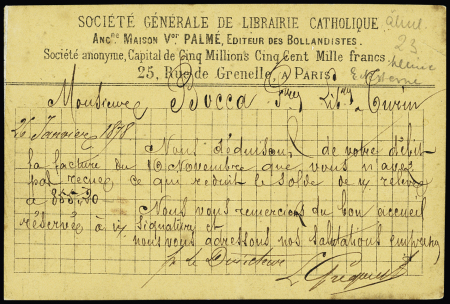 SOCIÉTÉ GÉNÉRALE DE LIBRAIRIE CATHOLIQUE
ANCne MAISON Vor PALMÉ, EDITEUR DES BOLLANDISTES.
Société anonyme, Capital de Cinq Millions Cinq Cent Mille francs
25, Rue de Grenelle, A PARIS
23
Monsieur Bocca frères Lib. Turin
26 Janvier 1878
Nous déduisons de votre débit
la facture du 10 Novembre que vous n'avez
pas recue ce qui reduit le solde de relevé
à
Nous vous remercions du bon accueil
réservée à signature et
nous vous adressons nos salutations empressées
pr le Directeur